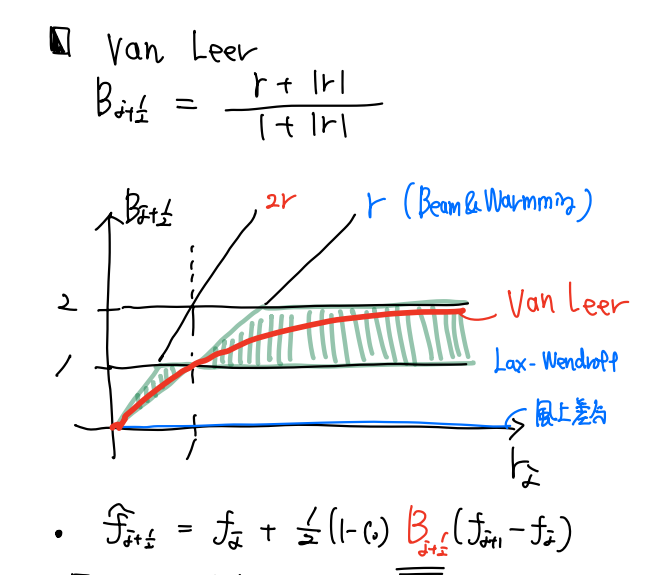 Van Leer
B_{j+1/2} = (r + |r|) / (1 + |r|)
B_{j+1/2}
2r
r (Beam & Warmming)
2
Van Leer
1
Lax-Wendroff
風上差分
1
r_j
• f̂_{j+1/2} = f_j + 1/2 (1-C₀) B_{j+1/2} (f_{j+1} - f_j)